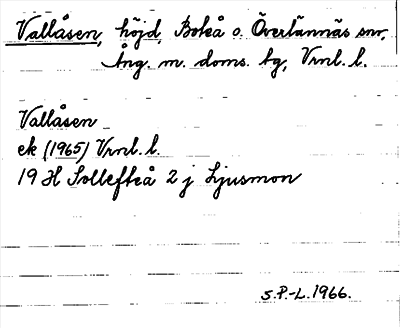 Vallåsen, höjd, Boteå o. Överlännäs snr,
Ång. m. doms. bg, Vrnl. l.
Vallåsen
ek (1965) Vrnl. l.
19 H Sollefteå 2 j Ljusmon
S.P.-L. 1966.